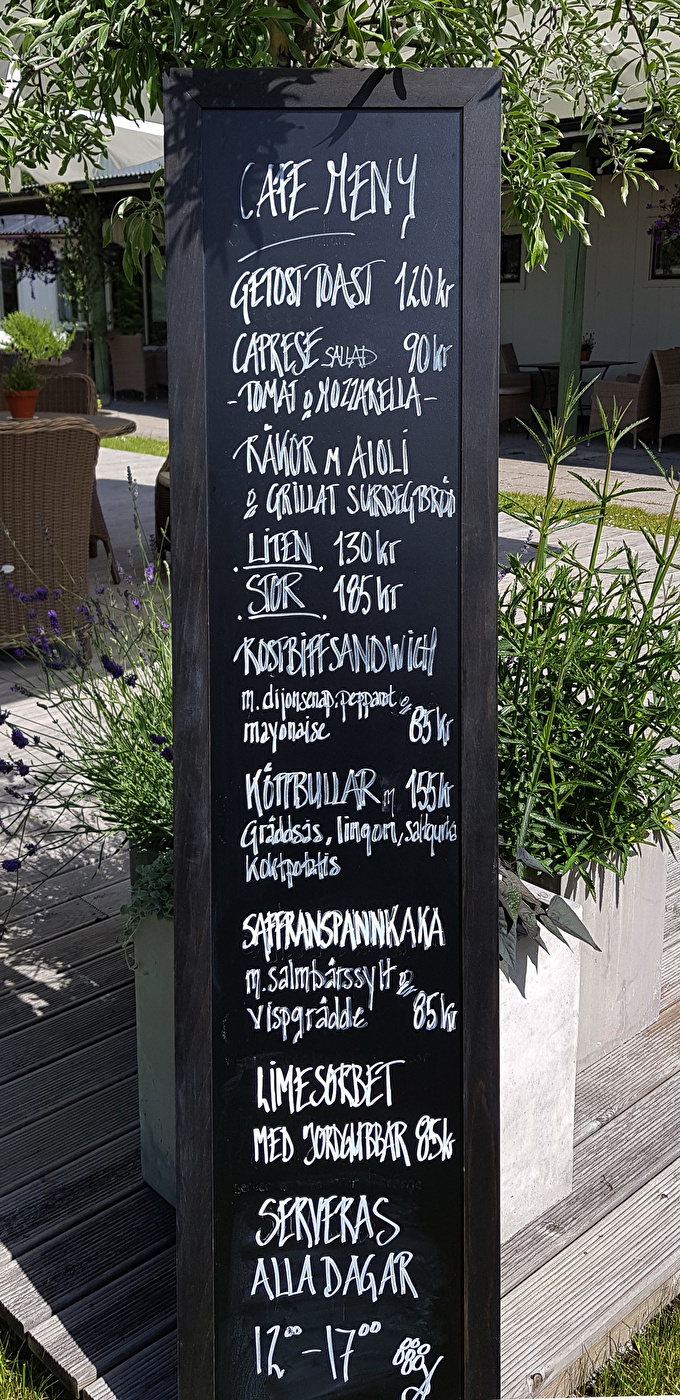 CAFE MENY
GETOST TOAST 120 kr
CAPRESE SALLAD 90 kr
-TOMAT & MOZZARELLA-
RÄKOR M AIOLI
& GRILLAT SURDEGSBRÖD
LITEN 130 kr
STOR 185 kr
ROSTBIFFSANDWICH
m. dijonsenap, pepparrot &
mayonaise 85 kr
KÖTTBULLAR m 155 kr
Gräddsås, lingon, saltgurka
Koktpotatis
SAFFRANSPANNKAKA
m. salmbärssylt &
vispgrädde 85 kr
LIMESORBET
MED JORDGUBBAR 85 kr
SERVERAS
ALLA DAGAR
12⁰⁰-17⁰⁰